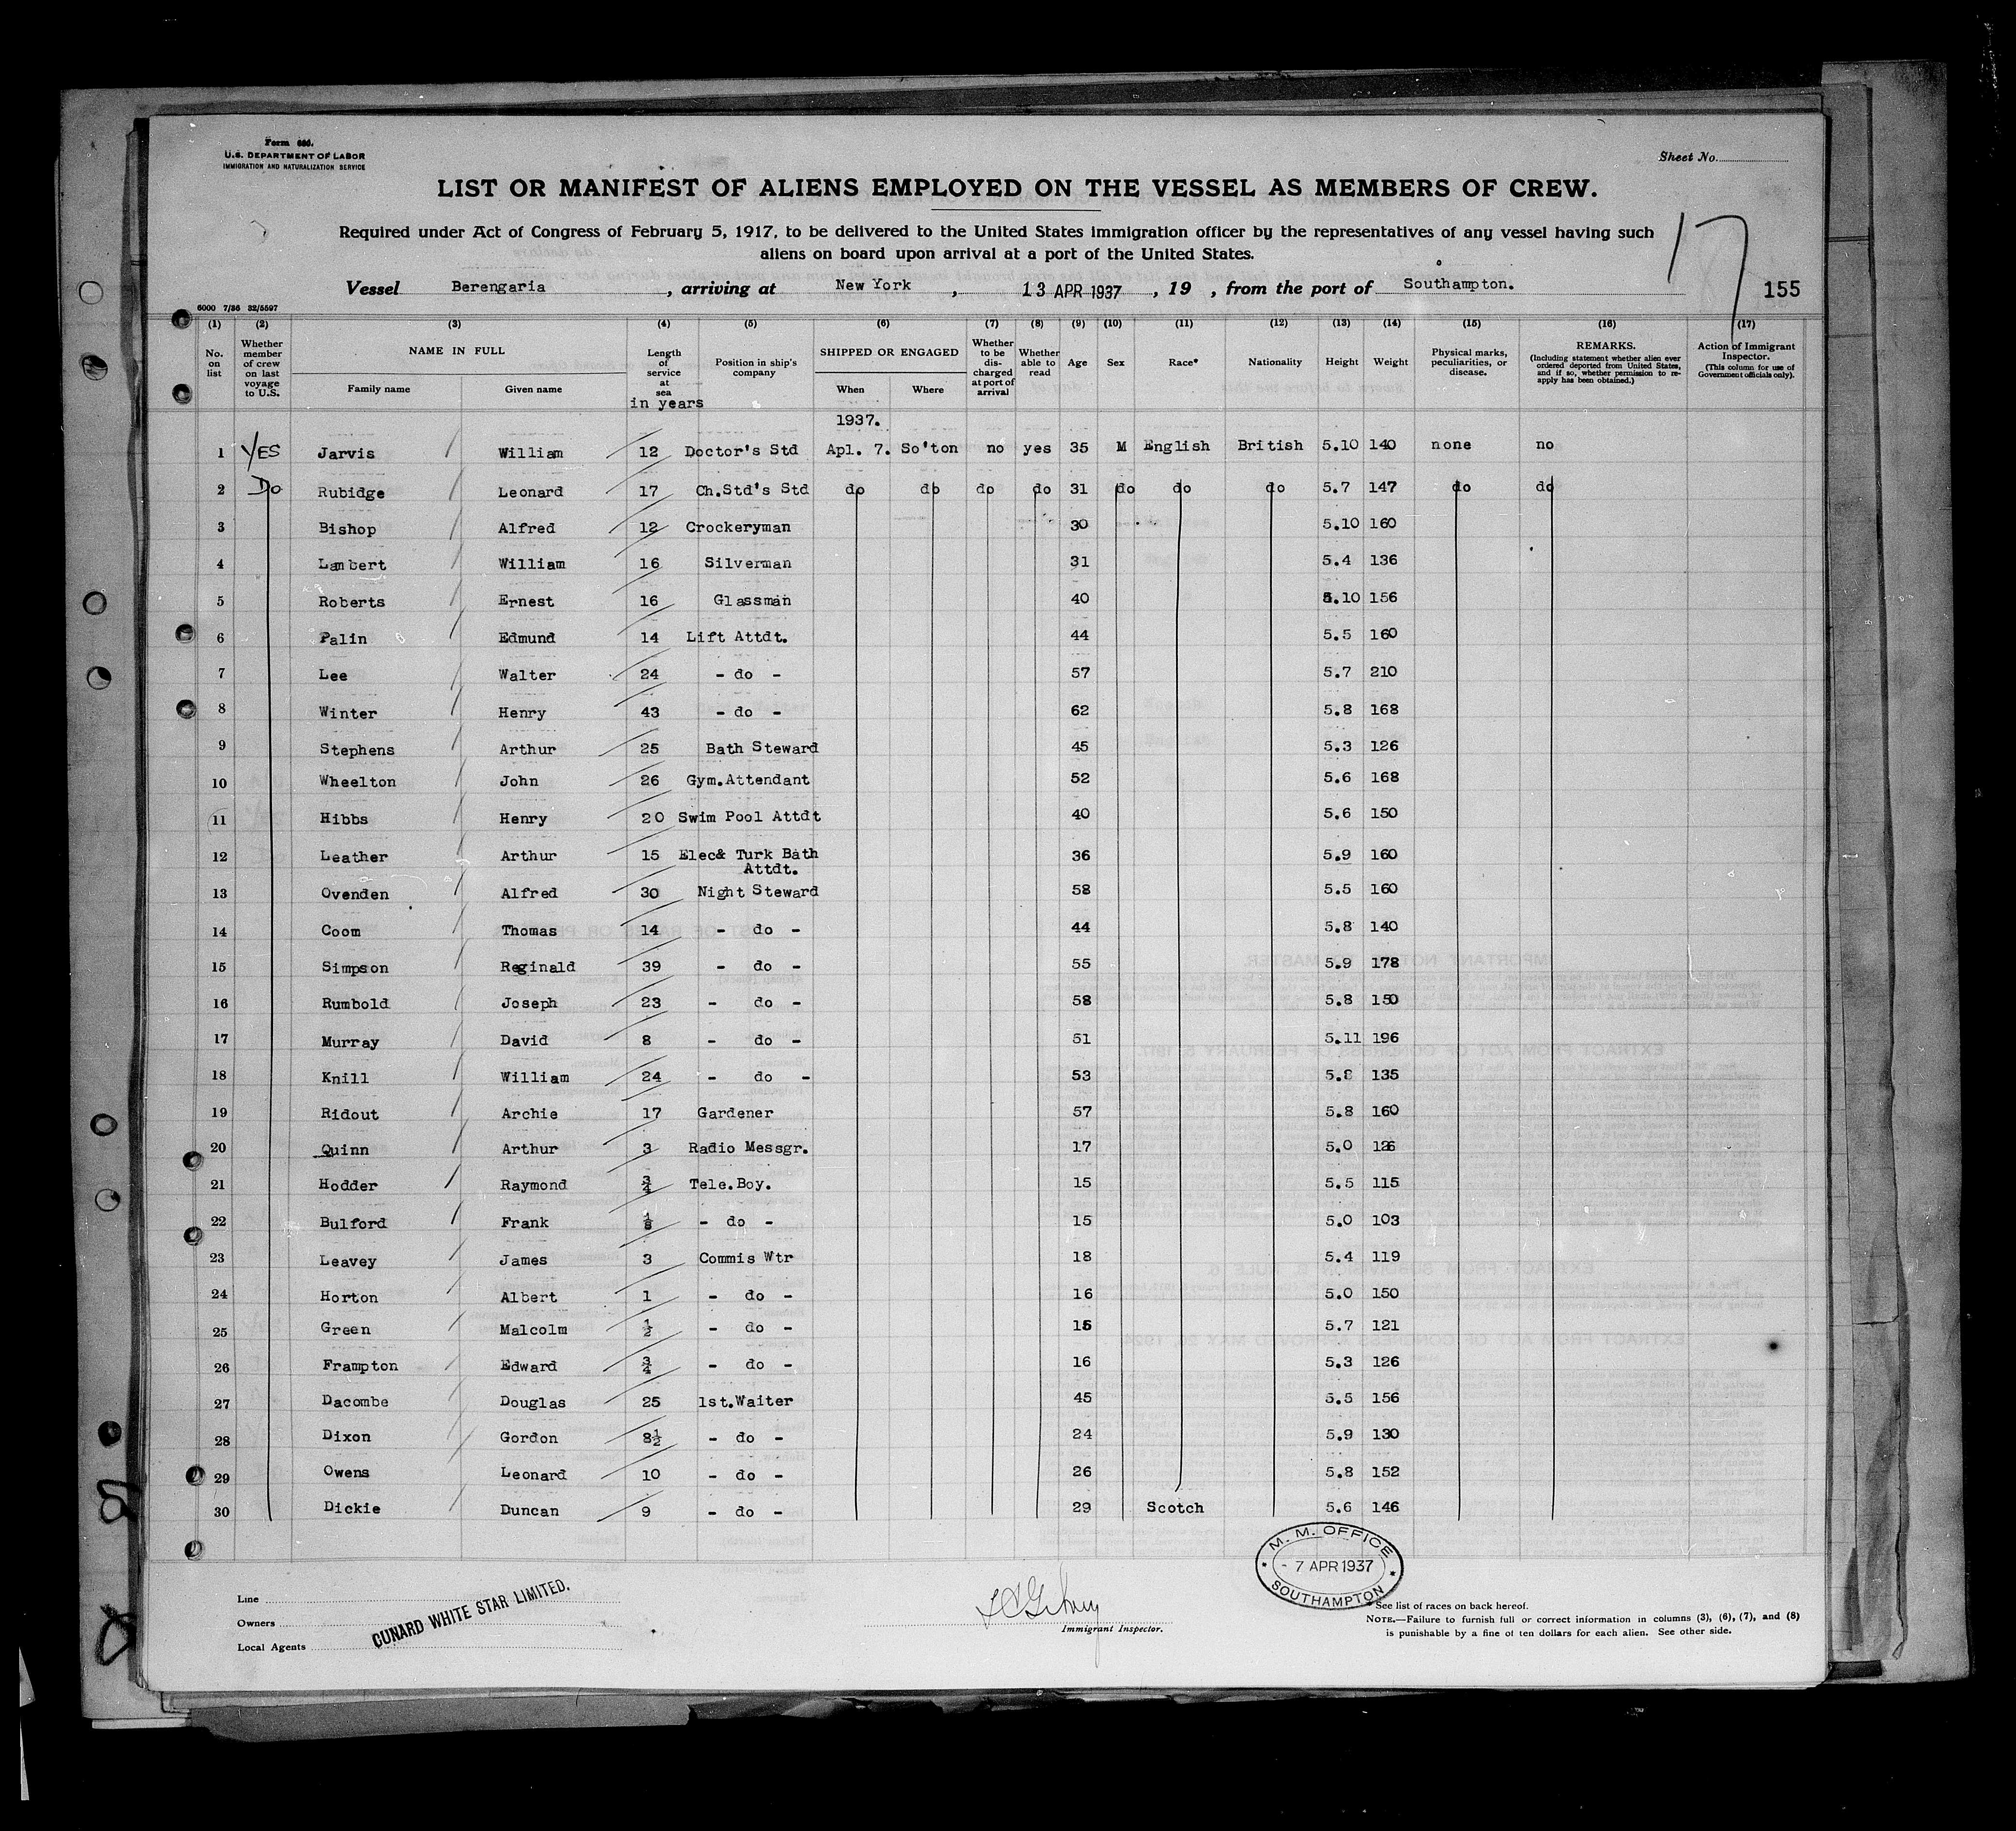 Form 680.
U.S. DEPARTMENT OF LABOR
IMMIGRATION AND NATURALIZATION SERVICE
Sheet No.
LIST OR MANIFEST OF ALIENS EMPLOYED ON THE VESSEL AS MEMBERS OF CREW.
Required under Act of Congress of February 5, 1917, to be delivered to the United States immigration officer by the representatives of any vessel having such
aliens on board upon arrival at a port of the United States.
17
Vessel Berengaria, arriving at New York, 13 APR 1937, 19 , from the port of Southampton.
155
6000 7/36 32/5597
(1) (2) (3) (4) (5) (6) (7) (8) (9) (10) (11) (12) (13) (14) (15) (16) (17)
No. on list
Whether member of crew on last voyage to U.S.
NAME IN FULL
Family name
Given name
Length of service at sea
in years
Position in ship's company
SHIPPED OR ENGAGED
When
Where
Whether to be discharged at port of arrival
Whether able to read
Age
Sex
Race*
Nationality
Height
Weight
Physical marks, peculiarities, or disease.
REMARKS.
(Including statement whether alien ever ordered deported from United States, and if so, whether permission to re-apply has been obtained.)
Action of Immigrant Inspector.
(This column for use of Government officials only).
1937.
1 YES Jarvis William 12 Doctor's Std Apl. 7. So'ton no yes 35 M English British 5.10 140 none no
2 Do Rubidge Leonard 17 Ch.Std's Std do do do do 31 do do do 5.7 147 do do
3 Bishop Alfred 12 Crockeryman 30 5.10 160
4 Lambert William 16 Silverman 31 5.4 136
5 Roberts Ernest 16 Glassman 40 5.10 156
6 Palin Edmund 14 Lift Attdt. 44 5.5 160
7 Lee Walter 24 - do - 57 5.7 210
8 Winter Henry 43 - do - 62 5.8 168
9 Stephens Arthur 25 Bath Steward 45 5.3 126
10 Wheelton John 26 Gym.Attendant 52 5.6 168
11 Hibbs Henry 20 Swim Pool Attdt 40 5.6 150
12 Leather Arthur 15 Elec& Turk Bath Attdt. 36 5.9 160
13 Ovenden Alfred 30 Night Steward 58 5.5 160
14 Coom Thomas 14 - do - 44 5.8 140
15 Simpson Reginald 39 - do - 55 5.9 178
16 Rumbold Joseph 23 - do - 58 5.8 150
17 Murray David 8 - do - 51 5.11 196
18 Knill William 24 - do - 53 5.8 135
19 Ridout Archie 17 Gardener 57 5.8 160
20 Quinn Arthur 3 Radio Messgr. 17 5.0 126
21 Hodder Raymond 3/4 Tele.Boy. 15 5.5 115
22 Bulford Frank 1/8 - do - 15 5.0 103
23 Leavey James 3 Commis Wtr 18 5.4 119
24 Horton Albert 1 - do - 16 5.0 150
25 Green Malcolm 1/2 - do - 16 5.7 121
26 Frampton Edward 3/4 - do - 16 5.3 126
27 Dacombe Douglas 25 1st.Waiter 45 5.5 156
28 Dixon Gordon 8 1/2 - do - 24 5.9 130
29 Owens Leonard 10 - do - 26 5.8 152
30 Dickie Duncan 9 - do - 29 Scotch 5.6 146
M. M. OFFICE
- 7 APR 1937
SOUTHAMPTON
Line
Owners
Local Agents
CUNARD WHITE STAR LIMITED.
Immigrant Inspector.
*See list of races on back hereof.
NOTE.—Failure to furnish full or correct information in columns (3), (6), (7), and (8)
is punishable by a fine of ten dollars for each alien. See other side.